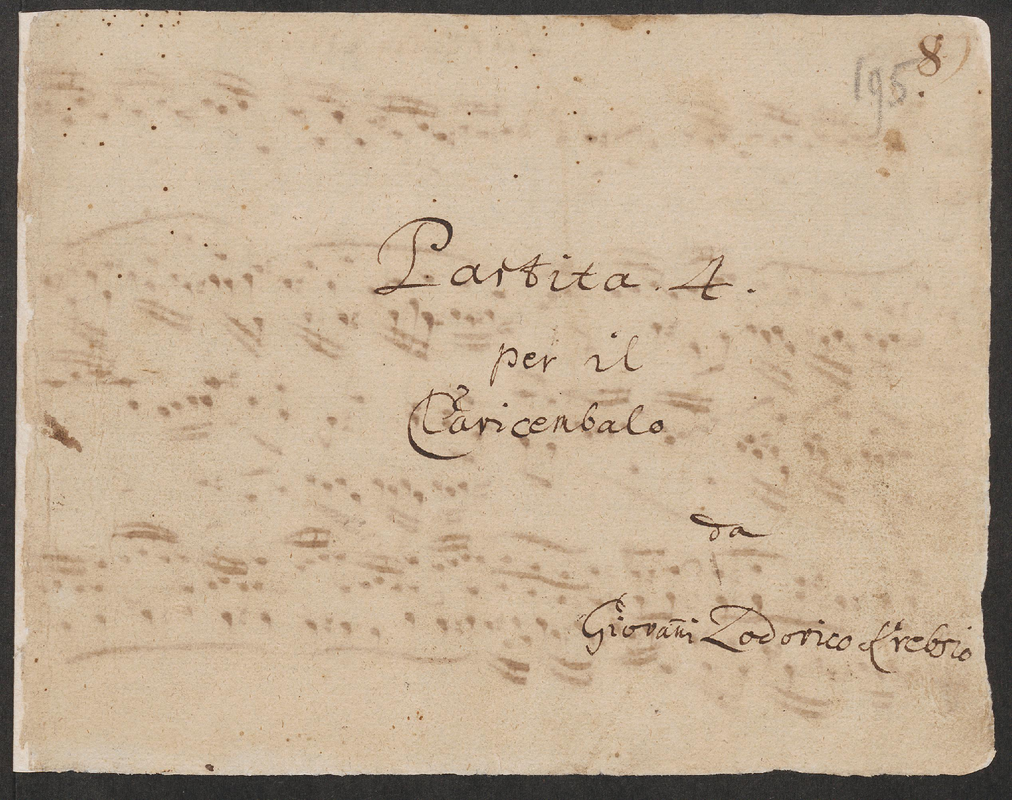 8)
195
Partita. 4.
per il
Claricembalo
da
Giovan̄i Lodovico Krebsio